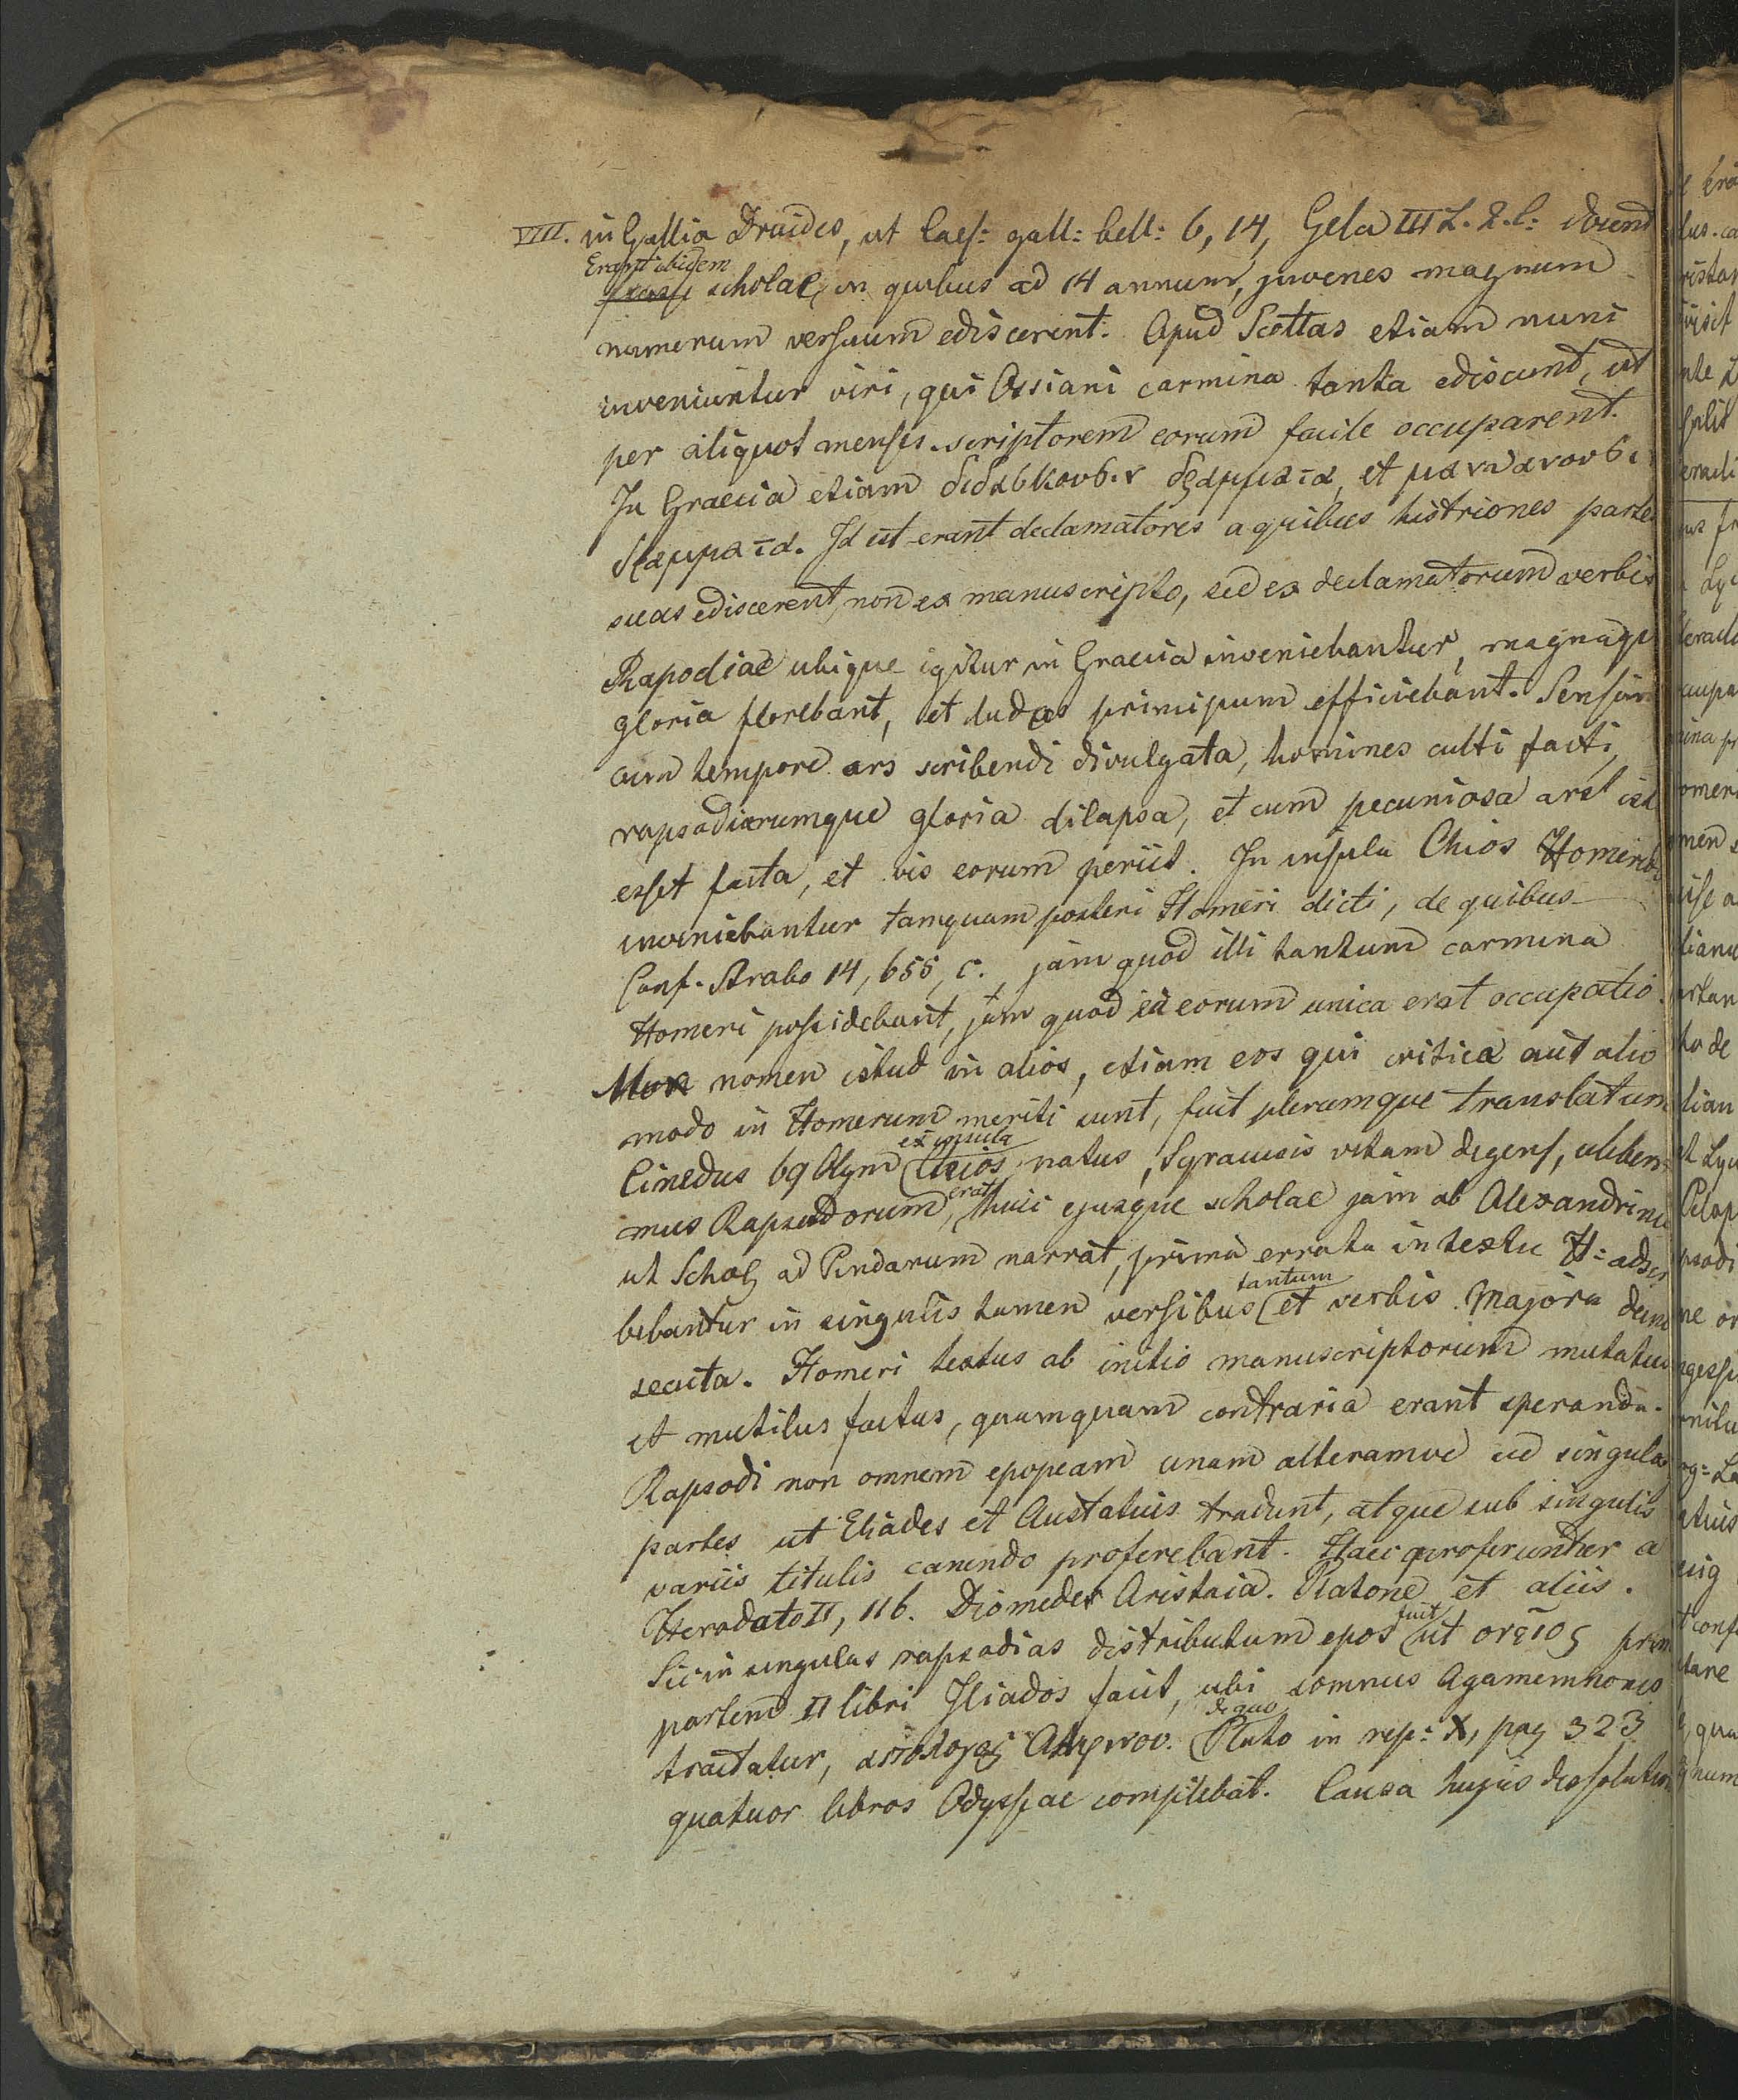 VIII. in Gallia Druides, ut Caes: gall: bell: 6, 14, Gela III L. 2. c: docent
Erant ibidem
scholae, in quibus ad 14 annum, juvenes magnum
numerum versuum ediscerent. Apud Scottas etiam nunc
inveniuntur viri, qui Ossiani carmina tanta ediscunt, ut
per aliquot menses scriptorem eorum facile occuparent.
In Graecia etiam διδασκουσιν δραμματα, et μανθανουσι
δραμματα. Id est erant declamatores a quibus histriones partes
suas ediscerent, non ex manuscripto, sed ex declamatorum verbis
Rapodiae ubique igitur in Graecia inveniebantur, magnaque
gloria florebant, et ludos principum efficiebant. Sensim
cum tempore ars scribendi divulgata, homines culti facti,
rapsodiarumque gloria dilapsa, et cum pecuniosa ars ist
esset facta, et vis eorum periit. In insula Chios Homerid
inveniebantur tamquam posteri Homeri dicti, de quibus
Conf. Strabo 14, 655, c. jam quod illi tantum carmina
Homeri possidebant, jam quod ea eorum unica erat occupatio.
Mox nomen istud in alios, etiam eos qui critica aut alio
modo in Homerum meriti sunt, fuit plerumque translatum
ex insula
Cinedus 69 Olym Chios natus, Syracusis vitam degens, celeberi
erat
mus Rapsodorum, huic ejusque scholae jam ab Alexandrinis
ut Schol ad Pindarum narrat, prima errata in textu H: adscr
tantum
bebantur in singulis tamen versibus et verbis. Majora dein
secuta. Homeri textus ab initio manuscriptorum mutatus
et mutilus factus, quamquam contraria erant speranda.
Rapsodi non omnem epopeam unam alteramve sed singulas
partes ut Eliades et Austatius tradunt, atque sub singulis
variis titulis canendo proferebant. Haec proferuntur a
Herodato II, 116. Diomedes Aristaia. Platone et aliis.
fuit
Sic in singulas rapsodias distributum epos ut ονειος prim
partem II libri Iliados facit, ubi somnus Agamemnonis
de quo
tractatur, απολογος Αλκινου. Plato in rep: X, pag 323
quatuor libros Odyssae complebat. Causa hujus dissolution